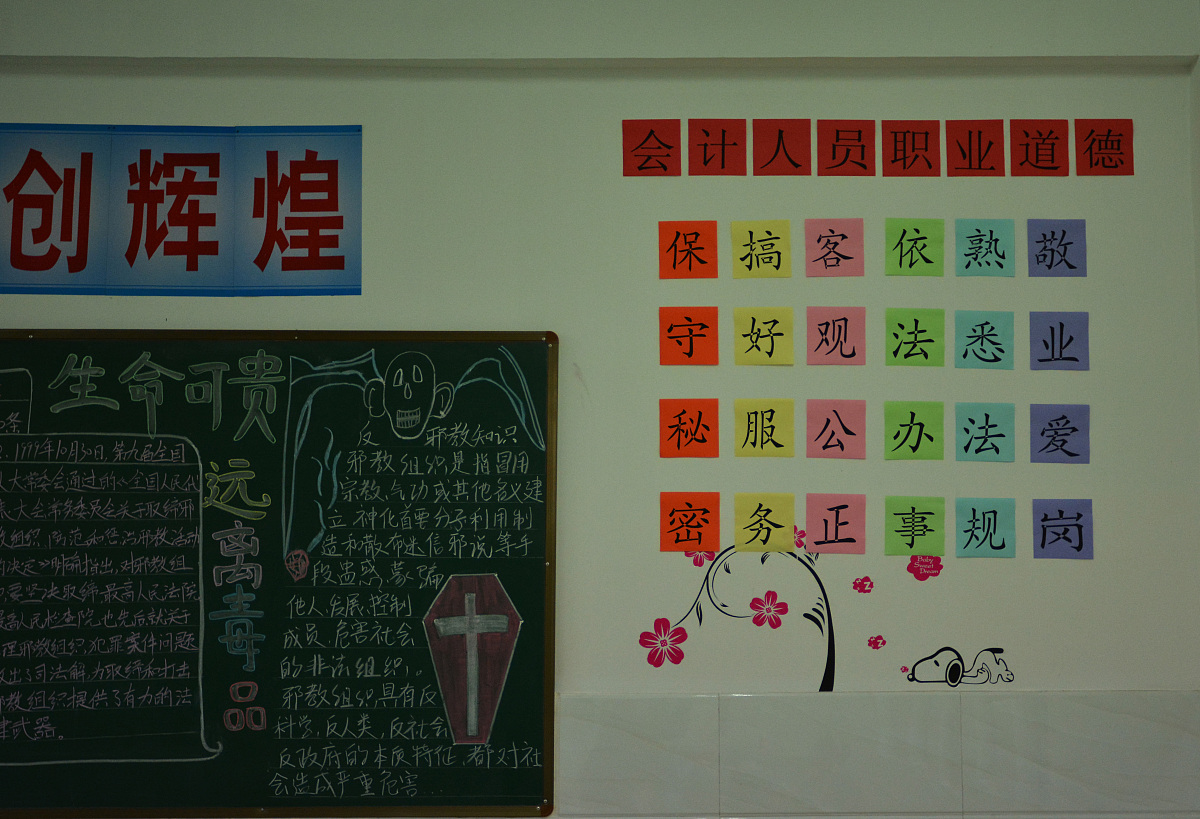 创辉煌
会计人员职业道德
保搞客依熟敬
守好观法悉业
秘服公办法爱
密务正事规岗
Baby
Sweet
Dream
生命可贵
远
离
毒
品
条
1999年10月30日,第九届全国
人大常委会通过的《全国人民代
表大会常务委员会关于取缔邪
教组织、防范和惩治邪教活动
的决定》明确指出,对邪教组
要坚决取缔,最高人民法院
最高人民检查院,也先后就关于
理邪教组织,犯罪案件问题
出了司法解,为取缔和打击
邪教组织提供了有力的法
律武器。
反 邪教知识
邪教组织是指冒用
宗教、气功或其他名义建
立神化首要分子利用制
造和散布迷信邪说,等手
段蛊惑,蒙骗
他人,发展,控制
成员,危害社会
的非法组织。
邪教组织具有反
科学,反人类,反社会
反政府的本质特征,都对社
会造成严重危害...